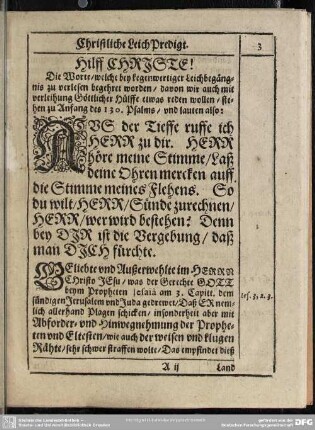 Christliche LeichPredigt.
3
Hilff CHRISTE!
Die Worte/welche bey kegenwertiger Leichbegäng-
nis zu verlesen begehret worden/ davon wir auch mit
verleihung Göttlicher Hülffe etwas reden wollen/ ste-
hen zu Anfang des 130. Psalms/ und lauten also:
AVS der Tieffe ruffe ich
HERR zu dir. HERR
höre meine Stimme/Laß
deine Ohren mercken auff
die Stimme meines Flehens. So
du wilt/HERR/Sünde zurechnen/
HERR/wer wird bestehen? Denn
bey DIR ist die Vergebung/ daß
man DICH fürchte.
GEliebte und Außerwehlte im HERRN
Christo JESu/ was der Gerechte GOTT
beym Propheten Jesaiâ am 3. Capitt. dem
sündigen Jerusalem und Juda gedrewet/Daß ER nem-
lich allerhand Plagen schicken/ insonderheit aber mit
Abforder- und Hinwegnehmung der Prophe-
ten und Eltesten/wie auch der weisen und klugen
Rähte/sehr schwer straffen wolte/Das empfindet dieß
Jes. 3, 2. 3.
A ij
Land